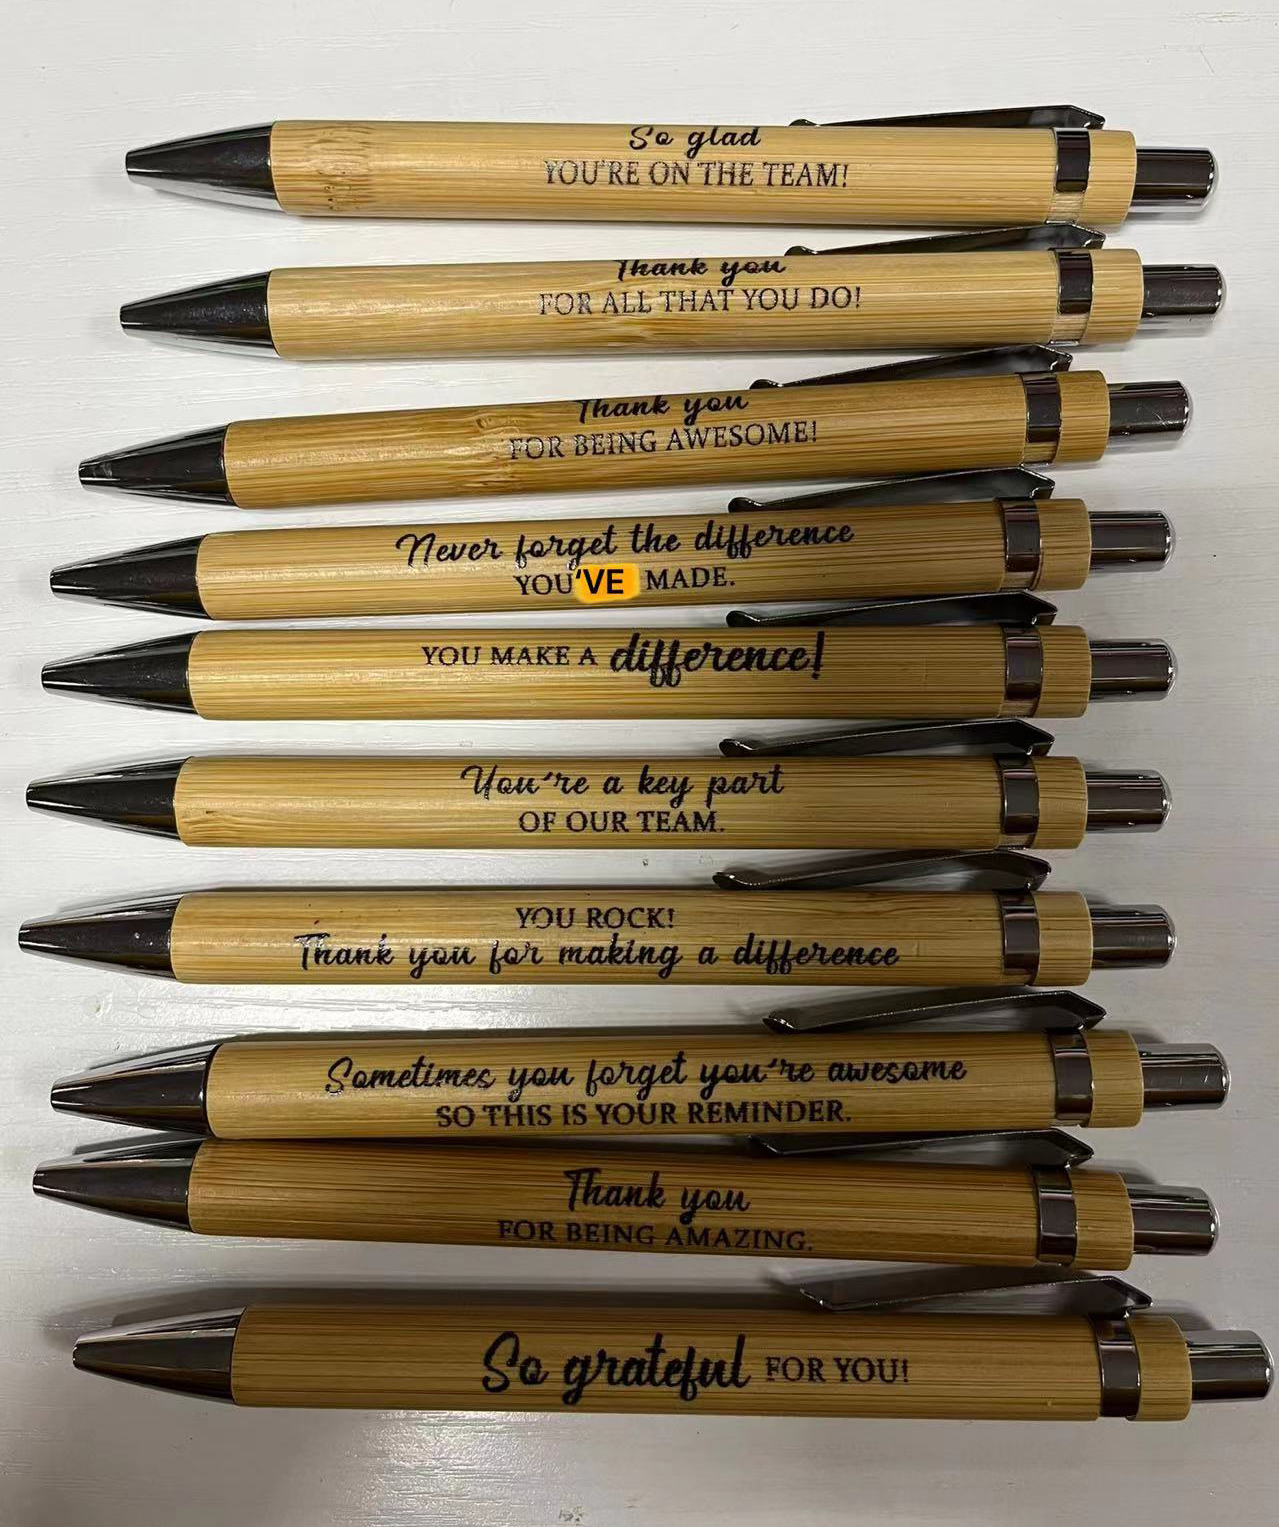 So glad
YOU'RE ON THE TEAM!
Thank you
FOR ALL THAT YOU DO!
Thank you
FOR BEING AWESOME!
Never forget the difference
YOU'VE MADE.
YOU MAKE A difference!
You're a key part
OF OUR TEAM.
YOU ROCK!
Thank you for making a difference
Sometimes you forget you're awesome
SO THIS IS YOUR REMINDER.
Thank you
FOR BEING AMAZING.
So grateful FOR YOU!